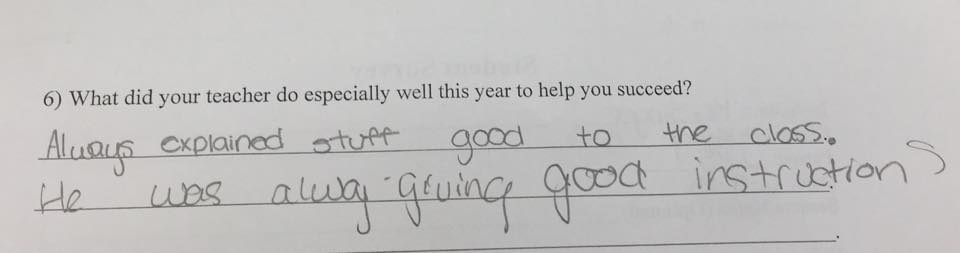 6) What did your teacher do especially well this year to help you succeed?
Always explained stuff good to the class.
He was alway giving good instructions